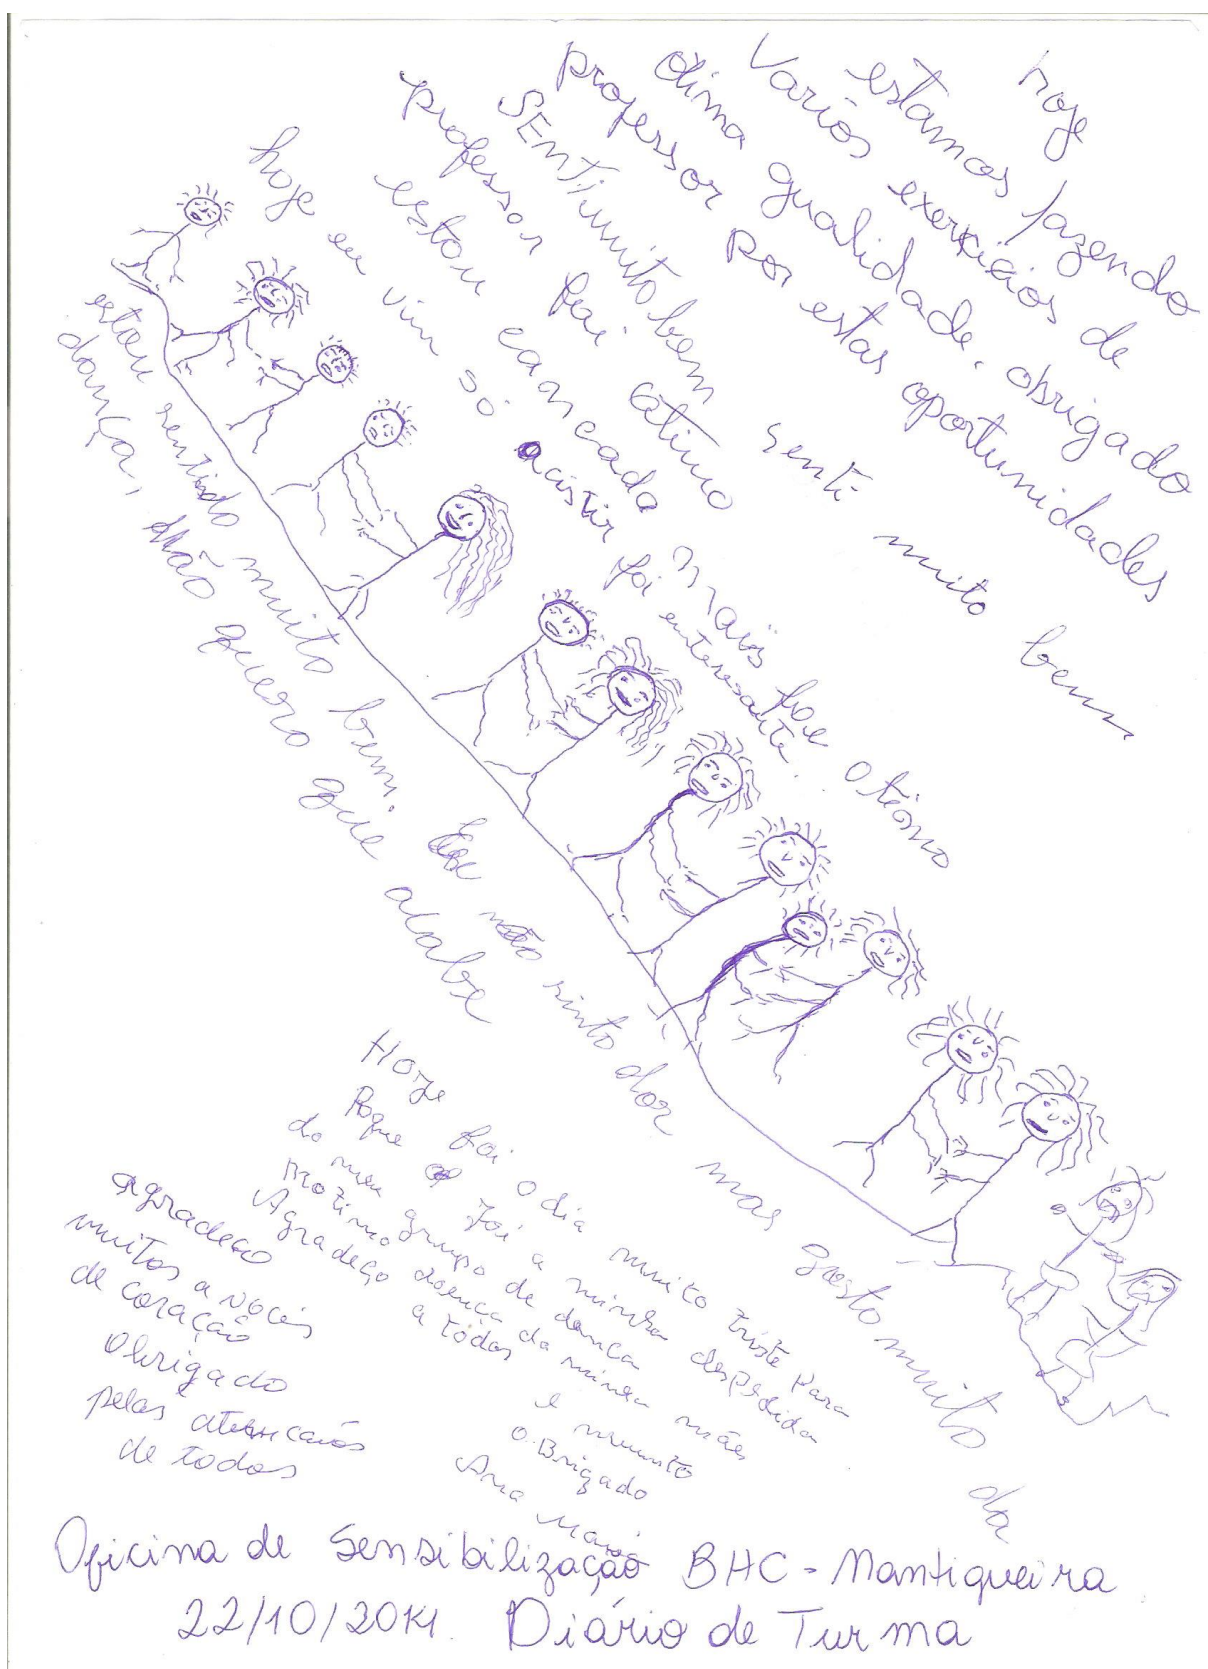 hoje
estamos fazendo
varios exercicios de
otima qualidade, obrigado
professor por estas oportunidades
SENTi muito bem senti muito bem
professor foi otimo
estou cancada mais foe otiomo
hoje eu vim só acistir foi enteresante.
estou sentido muito bem. Eu não sinto dor mas gosto muito da
dança, não quero que acabe
Hoije foi o dia muito triste Para
Poque foi a minha despedida
do meu grupo de dança
motimo doença da minha mães
Agradeço a todos e muinto
O.Brigado
Ana Maria
agradeço
muitos a vocês
de coração
Obrigado
pelas atencaiós
de todos
Oficina de Sensibilização BHC - Mantiqueira
22/10/2014. Diário de Turma